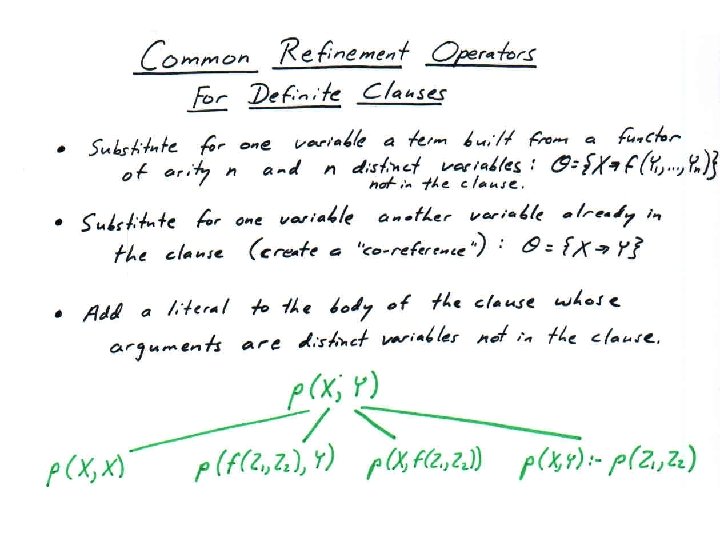 Common Refinement Operators
For Definite Clauses
• Substitute for one variable a term built from a functor
of arity n and n distinct variables: Θ={X→f(Y₁,...,Yₙ)}
not in the clause.
• Substitute for one variable another variable already in
the clause (create a "co-reference"): Θ={X→Y}
• Add a literal to the body of the clause whose
arguments are distinct variables not in the clause.
p(X, Y)
p(X,X) p(f(Z₁,Z₂),Y) p(X,f(Z₁,Z₂)) p(X,Y):- p(Z₁,Z₂)